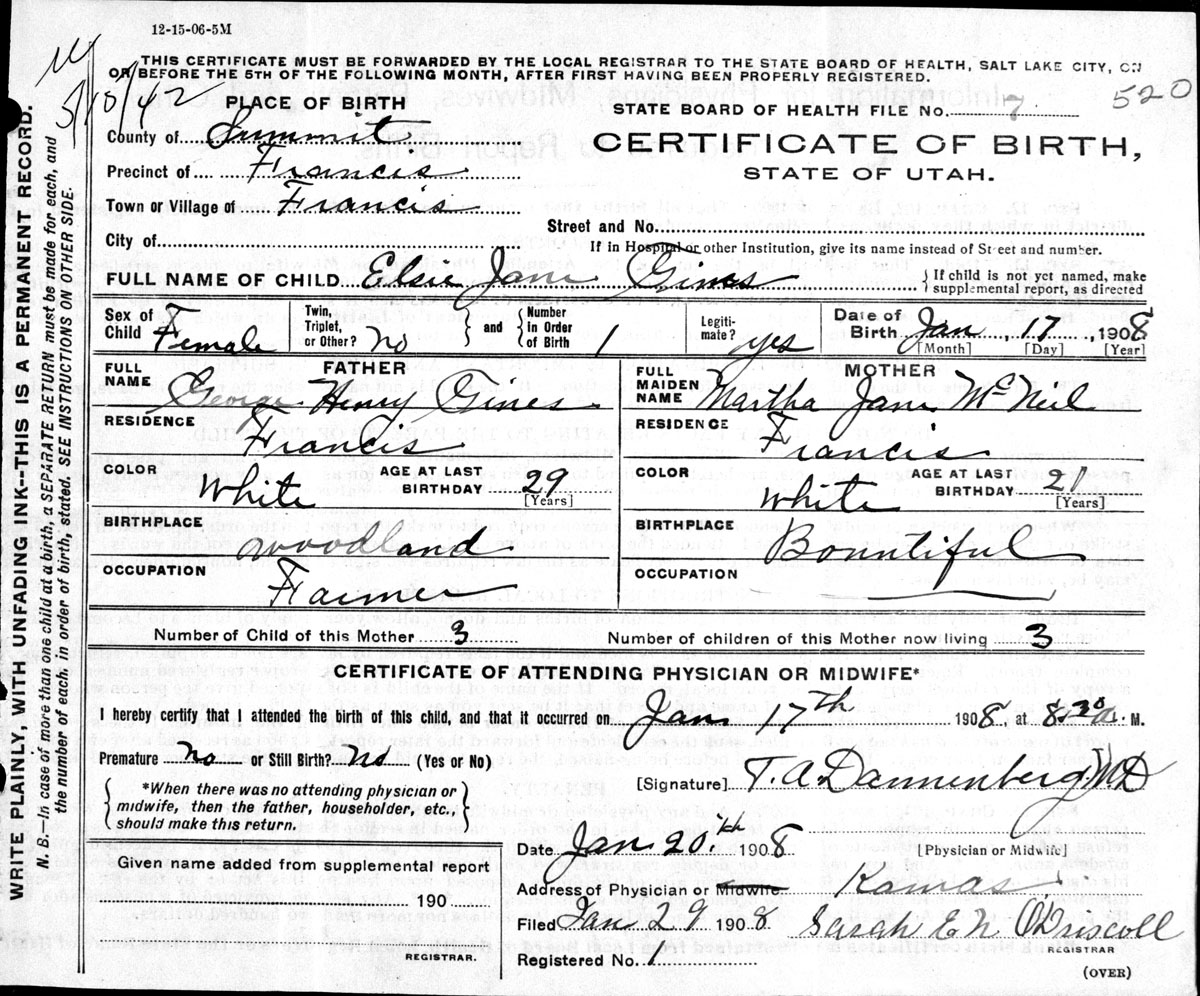 12-15-06-5M
THIS CERTIFICATE MUST BE FORWARDED BY THE LOCAL REGISTRAR TO THE STATE BOARD OF HEALTH, SALT LAKE CITY, ON
OR BEFORE THE 5TH OF THE FOLLOWING MONTH, AFTER FIRST HAVING BEEN PROPERLY REGISTERED.
5/10/42
520
PLACE OF BIRTH
STATE BOARD OF HEALTH FILE No. 7
County of Summit
CERTIFICATE OF BIRTH,
STATE OF UTAH.
Precinct of Francis
Town or Village of Francis
Street and No.
City of
If in Hospital or other Institution, give its name instead of Street and number.
FULL NAME OF CHILD Elsie Jane Gines { If child is not yet named, make supplemental report, as directed
Sex of Child Female Twin, Triplet, or Other? No } and { Number in Order of Birth 1 Legitimate? yes Date of Birth Jan, 17, 1908
[Month] [Day] [Year]
FATHER
FULL NAME George Henry Gines
RESIDENCE Francis
COLOR White AGE AT LAST BIRTHDAY 29 [Years]
BIRTHPLACE Woodland
OCCUPATION Farmer
MOTHER
FULL MAIDEN NAME Martha Jane McNeil
RESIDENCE Francis
COLOR White AGE AT LAST BIRTHDAY 21 [Years]
BIRTHPLACE Bountiful
OCCUPATION
Number of Child of this Mother 3 Number of children of this Mother now living 3
CERTIFICATE OF ATTENDING PHYSICIAN OR MIDWIFE*
I hereby certify that I attended the birth of this child, and that it occurred on Jan. 17th 1908, at 8:30 a. M.
Premature No or Still Birth? No (Yes or No)
[Signature] T. A. Dannenberg, MD
[Physician or Midwife]
{ *When there was no attending physician or midwife, then the father, householder, etc., should make this return. }
Date Jan 20th 1908
Given name added from supplemental report
190
REGISTRAR.
Address of Physician or Midwife Kamas
Filed Jan 29 1908 Sarah E N O'Driscoll
REGISTRAR
Registered No. 1
(OVER)
WRITE PLAINLY, WITH UNFADING INK--THIS IS A PERMANENT RECORD.
N. B. In case of more than one child at a birth, a SEPARATE RETURN must be made for each, and
the number of each, in order of birth, stated. SEE INSTRUCTIONS ON OTHER SIDE.